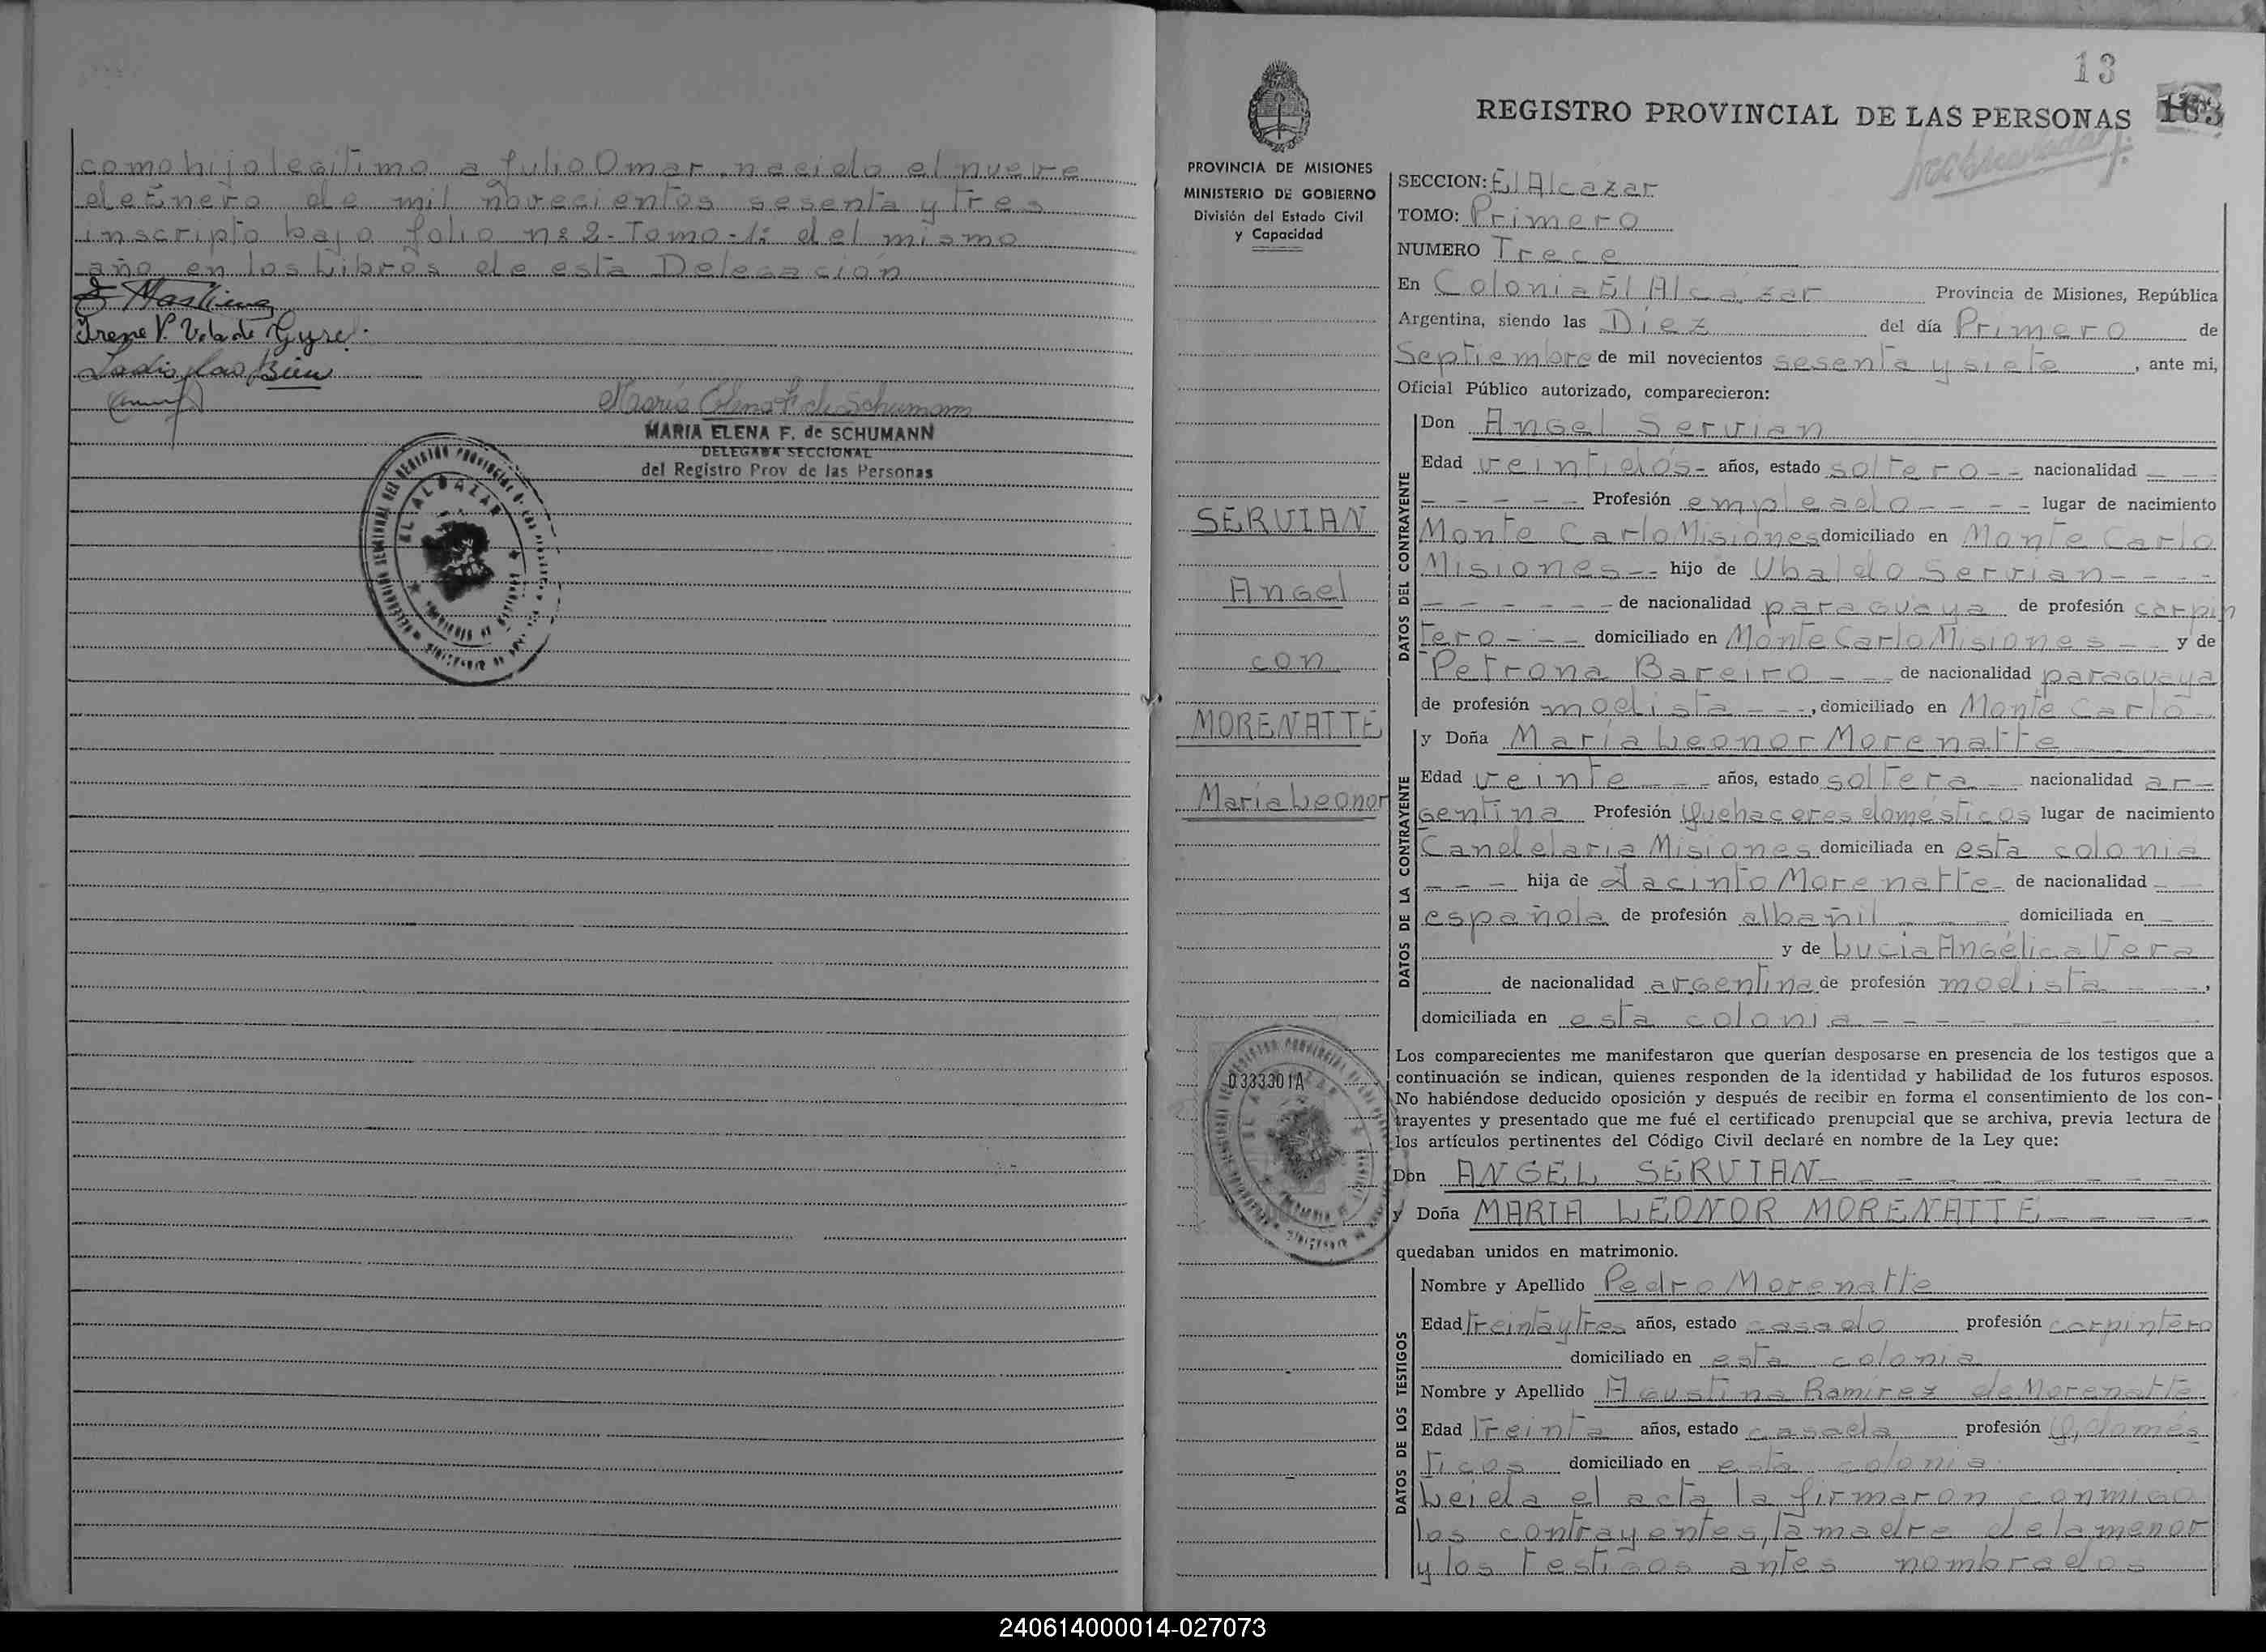 como hijo legitimo a Julio Omar, nacido el nueve
de Enero de mil novecientos sesenta y tres
inscripto bajo folio nº 2- Tomo -1º del mismo
año en los Libros de esta Delegación
Irene V. Vda de Gyre
Ladislao Bieu
Maria Elena F. de Schumann
MARIA ELENA F. de SCHUMANN
DELEGADA SECCIONAL
del Registro Prov de las Personas
EL ALCAZAR
13
REGISTRO PROVINCIAL DE LAS PERSONAS
PROVINCIA DE MISIONES
MINISTERIO DE GOBIERNO
División del Estado Civil
y Capacidad
SERVIAN
Angel
con
MORENATTE
Maria Leonor
0333301A
SECCION: El Alcázar
TOMO: Primero
NUMERO Trece
En Colonia El Alcázar Provincia de Misiones, República
Argentina, siendo las Diez del día Primero de
Septiembre de mil novecientos sesenta y siete, ante mi,
Oficial Público autorizado, comparecieron:
DATOS DEL CONTRAYENTE
Don Angel Servian
Edad veintidós- años, estado soltero-- nacionalidad ---
----- Profesión empleado---- lugar de nacimiento
Monte Carlo Misiones domiciliado en Monte Carlo
Misiones-- hijo de Ubaldo Servian----
------ de nacionalidad paraguaya de profesión carpin
tero--- domiciliado en Monte Carlo Misiones -- y de
Petrona Bareiro --- de nacionalidad paraguaya
de profesión modista ---, domiciliado en Monte Carlo-
y Doña Maria Leonor Morenatte
DATOS DE LA CONTRAYENTE
Edad veinte --- años, estado soltera -- nacionalidad ar-
gentina Profesión Quehaceres domésticos lugar de nacimiento
Candelaria Misiones domiciliada en esta colonia
--- hija de Jacinto Morenatte- de nacionalidad --
española de profesión albañil ---- domiciliada en --
y de Lucia Angélica Vera
de nacionalidad argentina de profesión modista ---,
domiciliada en esta colonia---------
Los comparecientes me manifestaron que querían desposarse en presencia de los testigos que a
continuación se indican, quienes responden de la identidad y habilidad de los futuros esposos.
No habiéndose deducido oposición y después de recibir en forma el consentimiento de los con-
trayentes y presentado que me fué el certificado prenupcial que se archiva, previa lectura de
los artículos pertinentes del Código Civil declaré en nombre de la Ley que:
Don ANGEL SERVIAN--------
y Doña MARIA LEONOR MORENATTE----
quedaban unidos en matrimonio.
DATOS DE LOS TESTIGOS
Nombre y Apellido Pedro Morenatte
Edad treinta y tres años, estado casado profesión carpintero
domiciliado en esta colonia
Nombre y Apellido Agustina Ramirez de Morenatte
Edad treinta años, estado casada profesión Q. domés
ticos domiciliado en esta colonia
Leida el acta la firmaron conmigo
los contrayentes, la madre de la menor
y los testigos antes nombrados
240614000014-027073